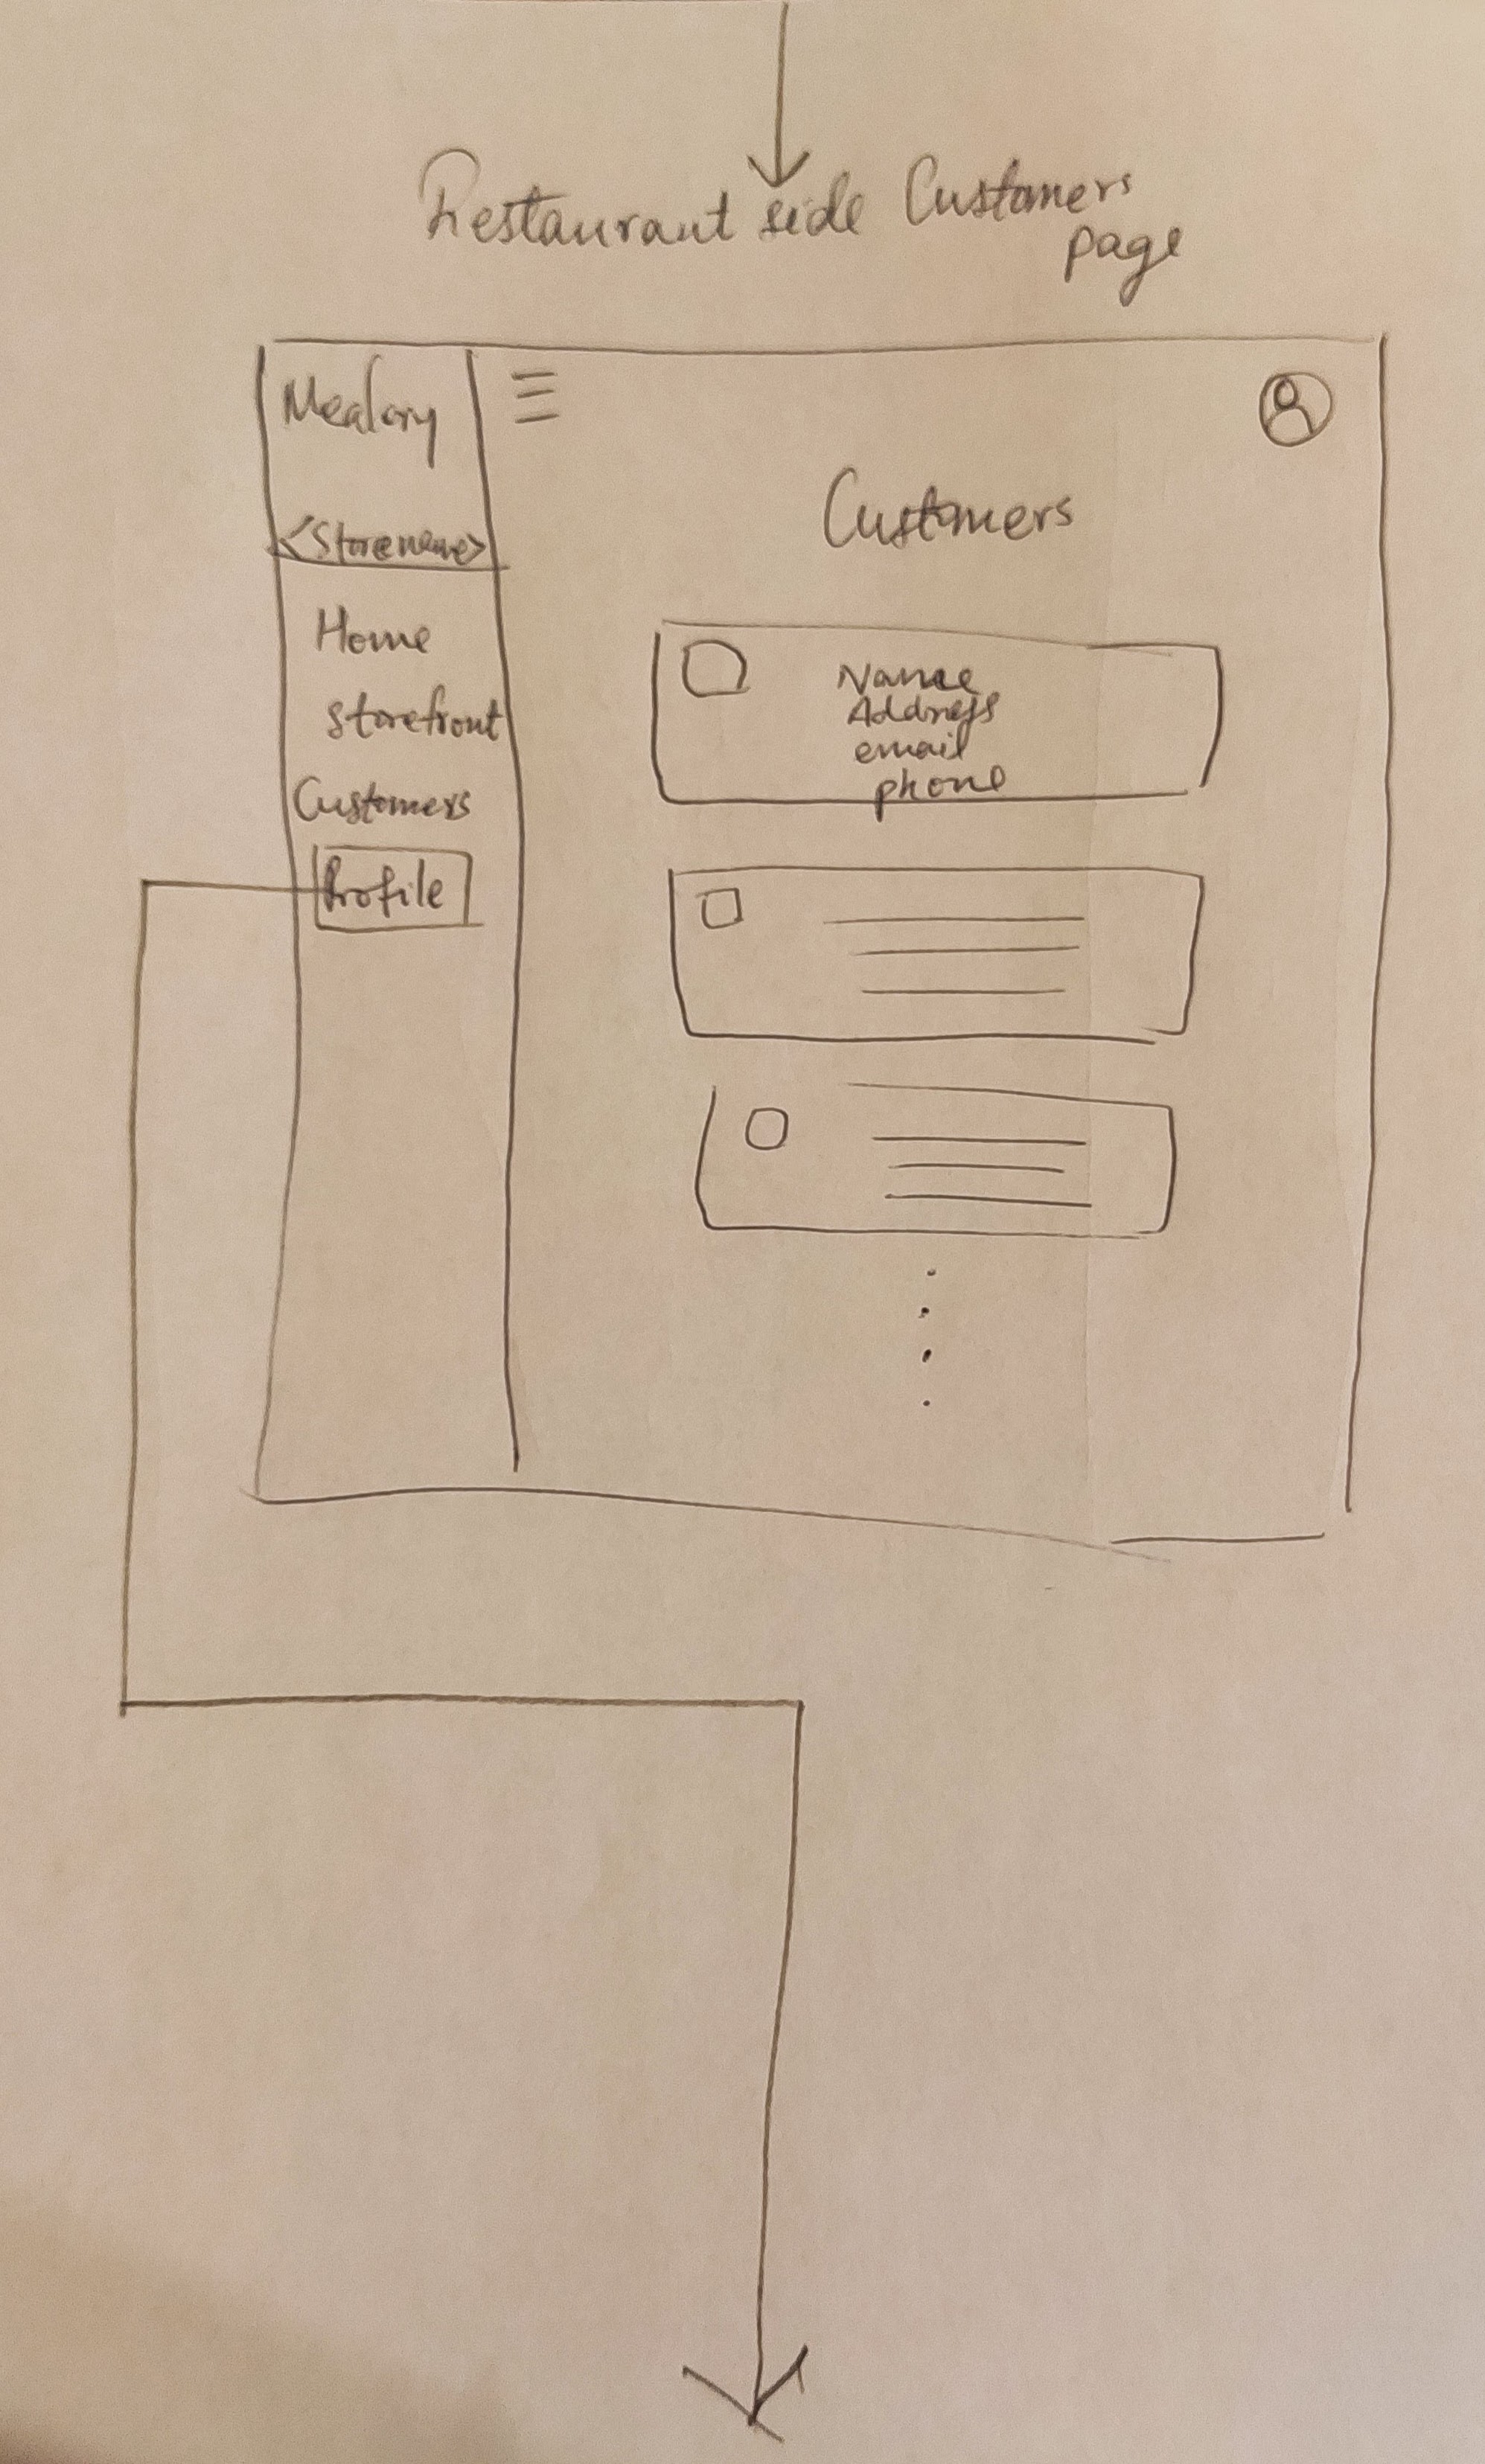 Restaurant side Customers
page
Mealory
<Storename>
Home
Storefront
Customers
Profile
Customers
Name
Address
email
phone